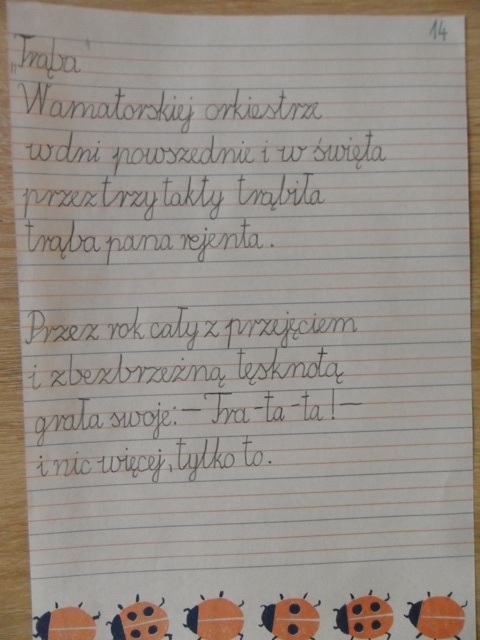 14
„Trąba"
Wamatorskiej orkiestrze
wdni powszednie i w święta
przeztrzy takty trąbiła
trąba pana rejenta.
Przez rok cały z przejęciem
i zbezbrzeżną tęsknotą
grała swoje: – Tra-ta-ta! –
i nic więcej, tylko to.